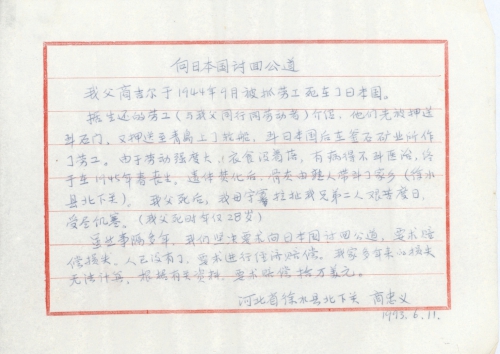 向日本国讨回公道
我父商吉尔于1944年9月被抓劳工死在了日本国。
据生还的劳工(与我父同行同劳动者)介绍,他们先被押送
到石门,又押送至青岛上了轮船,到日本国后在釜石矿业所作
了劳工。由于劳动强度大,衣食没着落,有病得不到医治,终
于在1945年春丧生。遗体焚化后,骨灰由难人带到了家乡(徐水
县北下关)。我父死后,我母守寡拉扯我兄弟二人艰苦度日,
受尽饥寒。(我父死时年仅28岁)
虽此事隔多年,我们坚决要求向日本国讨回公道,要求赔
偿损失。人已没有了,要求进行经济赔偿。我家多年来的损失
无法计算,根据有关资料,要求赔偿拾万美元。
河北省徐水县北下关 商忠义
1993.6.11.